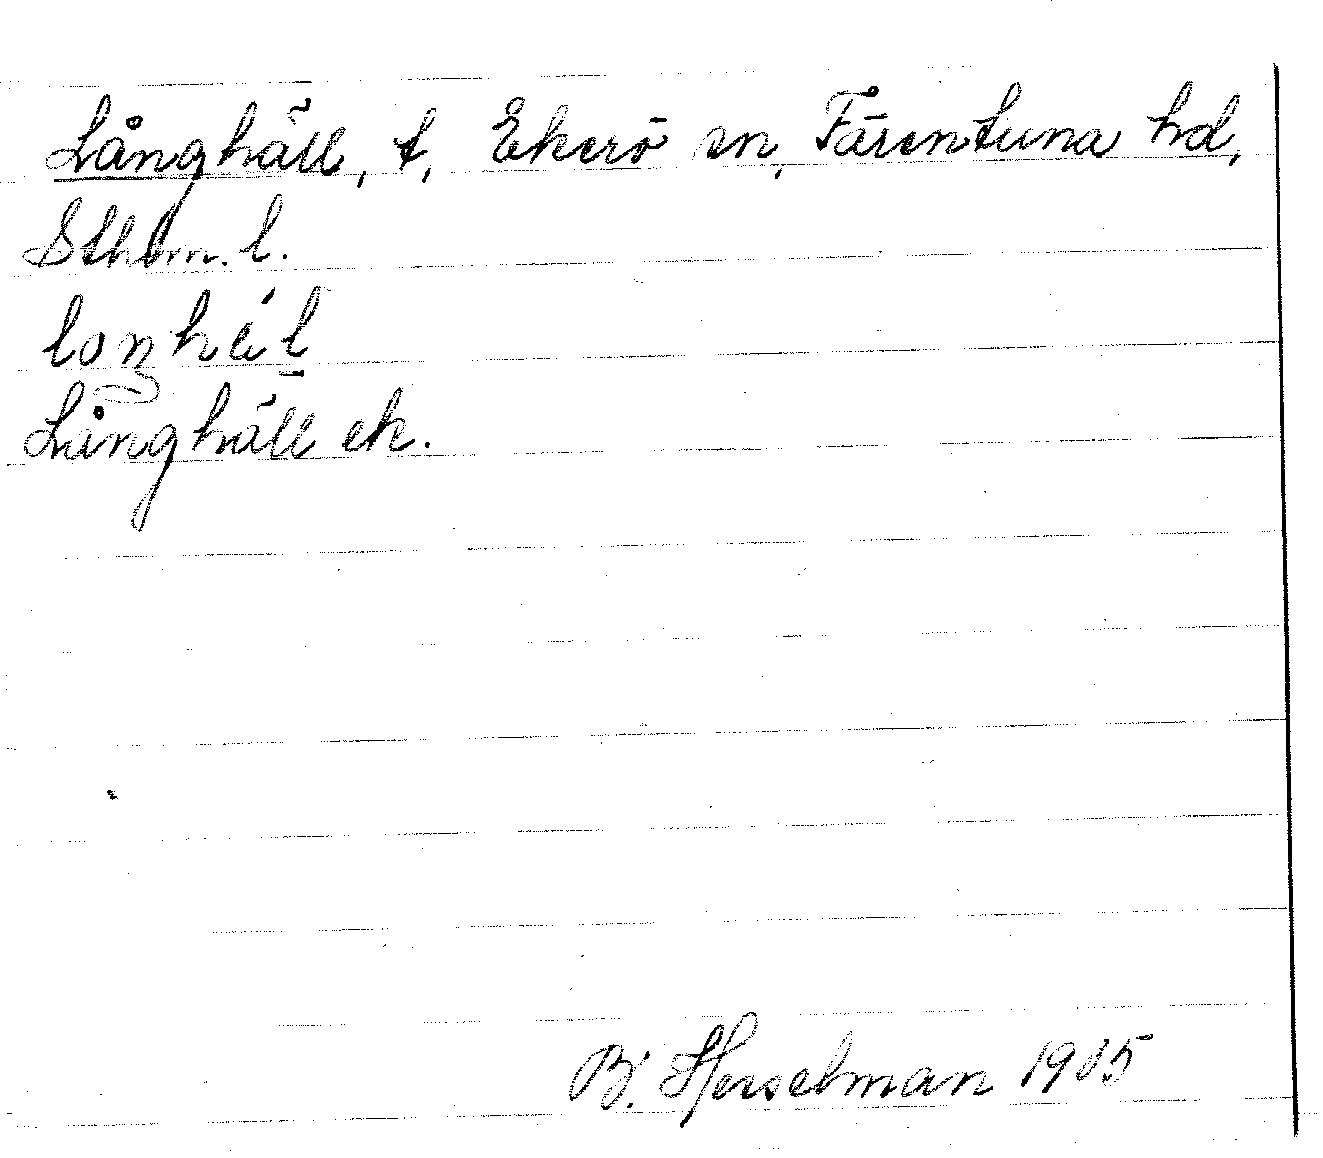 Långhäll, t, Ekerö sn, Färentuna hd,
Sthlm. l.
loŋhál
Långhäll ek.
B. Hesselman 1905